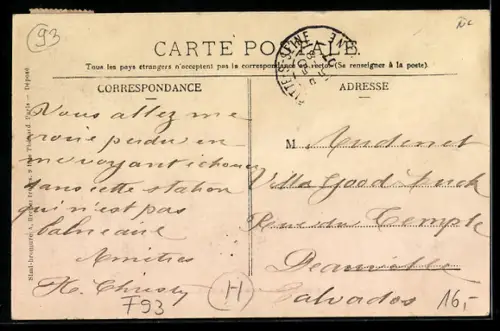 93
N.C
CARTE POSTALE.
Tous les pays étrangers n'acceptent pas la correspondance au recto. (Se renseigner à la poste).
CORRESPONDANCE
ADRESSE
Vous allez me
croire perdu en
me voyant échouer
dans cette station
qui n'est pas
balneaire
Amitiés
H. Christy
M. Audenet
Villa Good Luck
Rue du Temple
Deauville
Calvados
F93
H
16,-